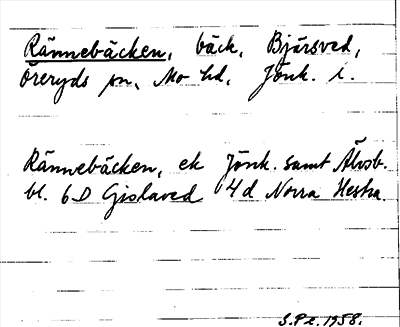 Rännebäcken, bäck, Bjärsved,
Öreryds sn, Mo hd, Jönk. l.
Rännebäcken, ek Jönk. samt Älvsb.
bl. 6D Gislaved 4d Norra Hestra.
S.Pl. 1958.